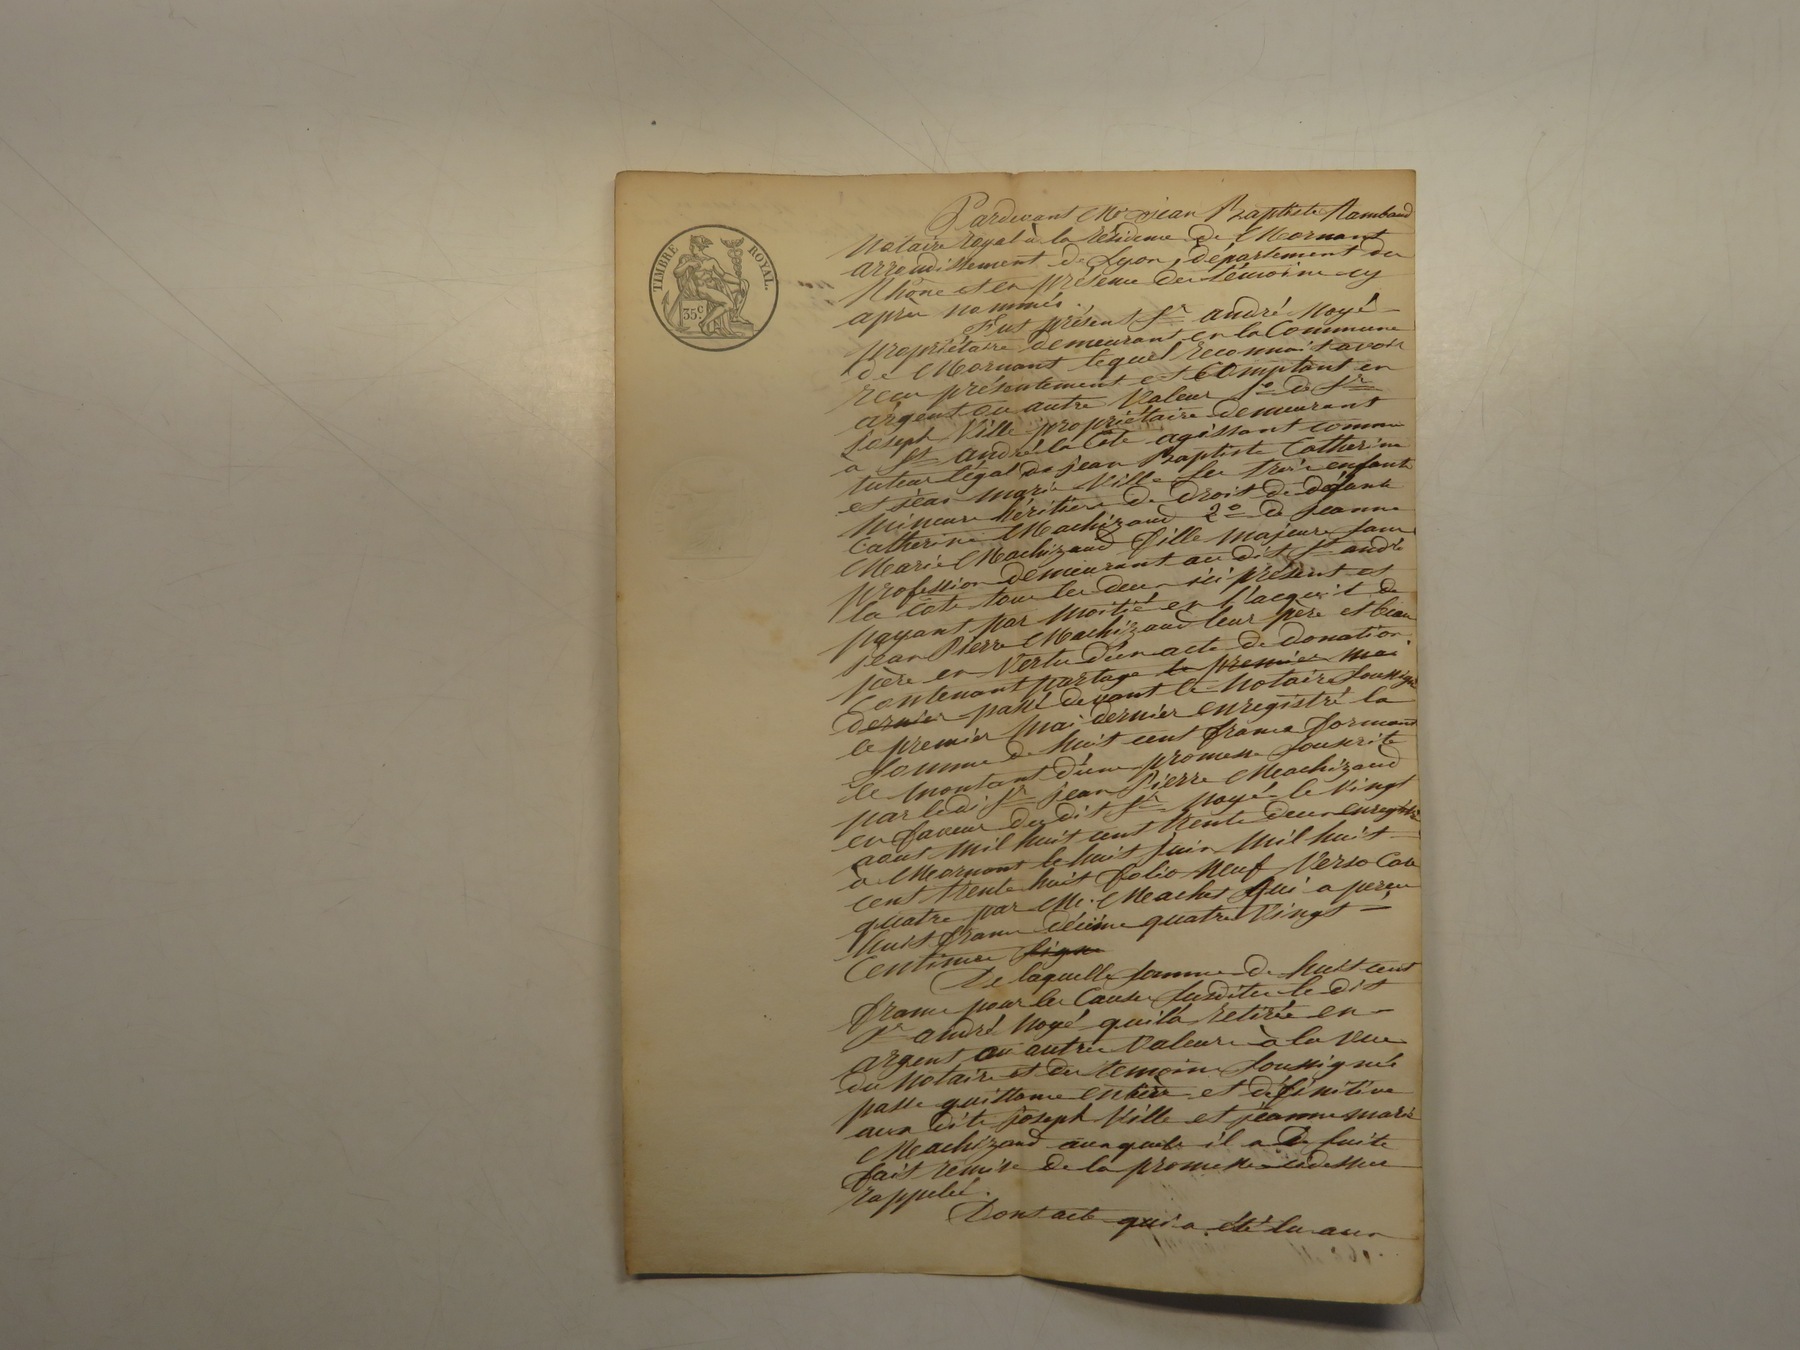 TIMBRE ROYAL.
35c.
Pardevant Me jean Baptiste Rambaud
Notaire royal à la résidence de Mornant
arrondissement de Lyon, département du
Rhône et en présence des témoins cy
après nommés.
Fut présent Sr andré Noyé
propriétaire demeurant en la Commune
de Mornant lequel reconnait avoir
recu présentement et Comptant en
argent ou autre Valeur 1o de Sr
joseph Ville propriétaire demeurant
à St andré la Côte agissant comme
tuteur légal de jean Baptiste Catherine
et jean marie Ville ses trois enfants
mineurs héritiers de droit de défunte
Catherine Machizaud 2o de jeanne
Marie Machizaud fille majeure sans
profession demeurant au dit St andré
la Côte tous les deux ici présent et
payant par moitié en l'acquit de
jean Pierre Machizaud leur père et beau
père en Vertu d'un acte de donation
Contenant partage le premier mai
dernier passé devant le Notaire soussigné
le premier mai dernier enregistré la
somme de huit cent francs formant
le montant d'une promesse souscrite
par ledi Sr jean Pierre Machizaud
en faveur du dit Sr Noyé le Vingt
aout mil huit cent trente deux enregistré
à Mornant le huit juin mil huit
cent trente huit folio Neuf Verso Case
quatre par Mr. Machet qui a perçu
huit francs décime quatre Vingt
Centimes signe
De laquelle somme de huit cent
francs pour les Causes susdites le dit
Sr andré Noyé qui l'a retirée en
argent ou autres Valeurs à la vue
du Notaire et des temoins soussignés
passe quittance entière et définitive
aux dits joseph Ville et jeanne marie
Machizaud auxquels il a de suite
fait remise de la promesse cidessus
rappelée.
Dont acte qui a été lu aux